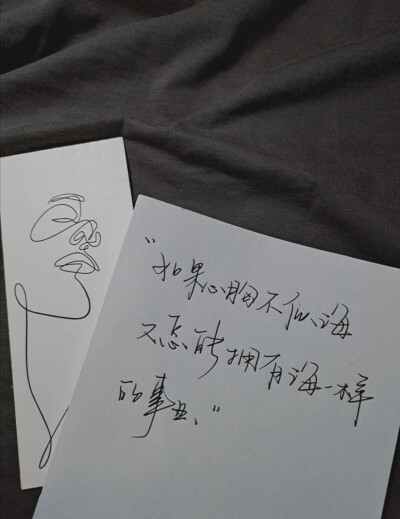 “如果心胸不似海
又怎能拥有海一样
的事业.”